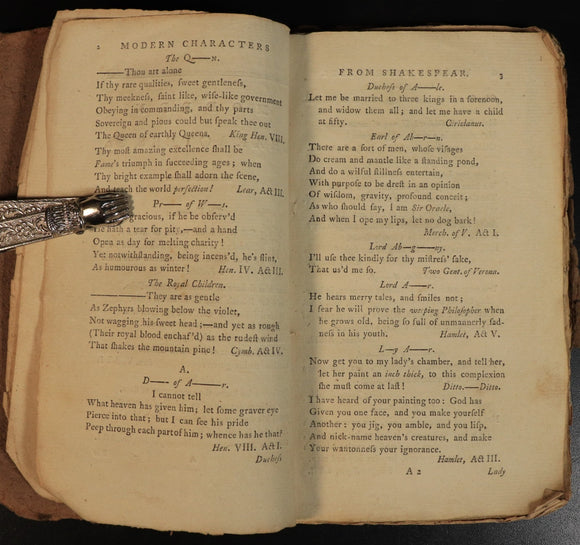 2 MODERN CHARACTERS
The Q——n.
———Thou art alone
If thy rare qualities, ſweet gentleneſs,
Thy meekneſs, ſaint like, wife-like government
Obeying in commanding, and thy parts
Sovereign and pious could but ſpeak thee out
The Queen of earthly Queens. King Hen. VIII.
Thy moſt amazing excellence ſhall be
Fame's triumph in ſucceeding ages; when
Thy bright example ſhall adorn the ſcene,
And teach the world perfection! Lear, Act III.
Pr—— of W—s.
gracious, if he be obſerv'd
He hath a tear for pity,—and a hand
Open as day for melting charity!
Yet notwithſtanding, being incens'd, he's flint,
As humourous as winter! Hen. IV. Act III.
The Royal Children.
————They are as gentle
As Zephyrs blowing below the violet,
Not wagging his ſweet head;—and yet as rough
(Their royal blood enchaf'd) as the rudeſt wind
That ſhakes the mountain pine! Cymb. Act IV.
A.
D—— of A——r.
I cannot tell
What heaven has given him; let ſome graver eye
Pierce into that; but I can ſee his pride
Peep through each part of him; whence has he that?
Hen. VIII. Act I.
Ducheſs
FROM SHAKESPEAR. 3
Ducheſs of A——le.
Let me be married to three kings in a forenoon,
and widow them all; and let me have a child
at fifty. Coriolanus.
Earl of Ab—r—n.
There are a ſort of men, whoſe viſages
Do cream and mantle like a ſtanding pond,
And do a wilful ſtillneſs entertain,
With purpoſe to be dreſt in an opinion
Of wiſdom, gravity, profound conceit;
As who ſhould ſay, I am Sir Oracle,
And when I ope my lips, let no dog bark!
Merch. of V. Act I.
Lord Ab—g——ny.
I'll uſe thee kindly for thy miſtreſs' ſake,
That us'd me ſo. Two Gent. of Verona.
Lord A——r.
He hears merry tales, and ſmiles not;
I fear he will prove the weeping Philoſopher when
he grows old, being ſo full of unmannerly ſad-
neſs in his youth. Hamlet, Act V.
L—y A——r.
Now get you to my lady's chamber, and tell her,
let her paint an inch thick, to this complexion
ſhe muſt come at laſt! Ditto.—Ditto.
I have heard of your painting too: God has
Given you one face, and you make yourſelf
Another: you jig, you amble, and you liſp,
And nick-name heaven's creatures, and make
Your wantonneſs your ignorance.
Hamlet, Act III.
A 2 Lady